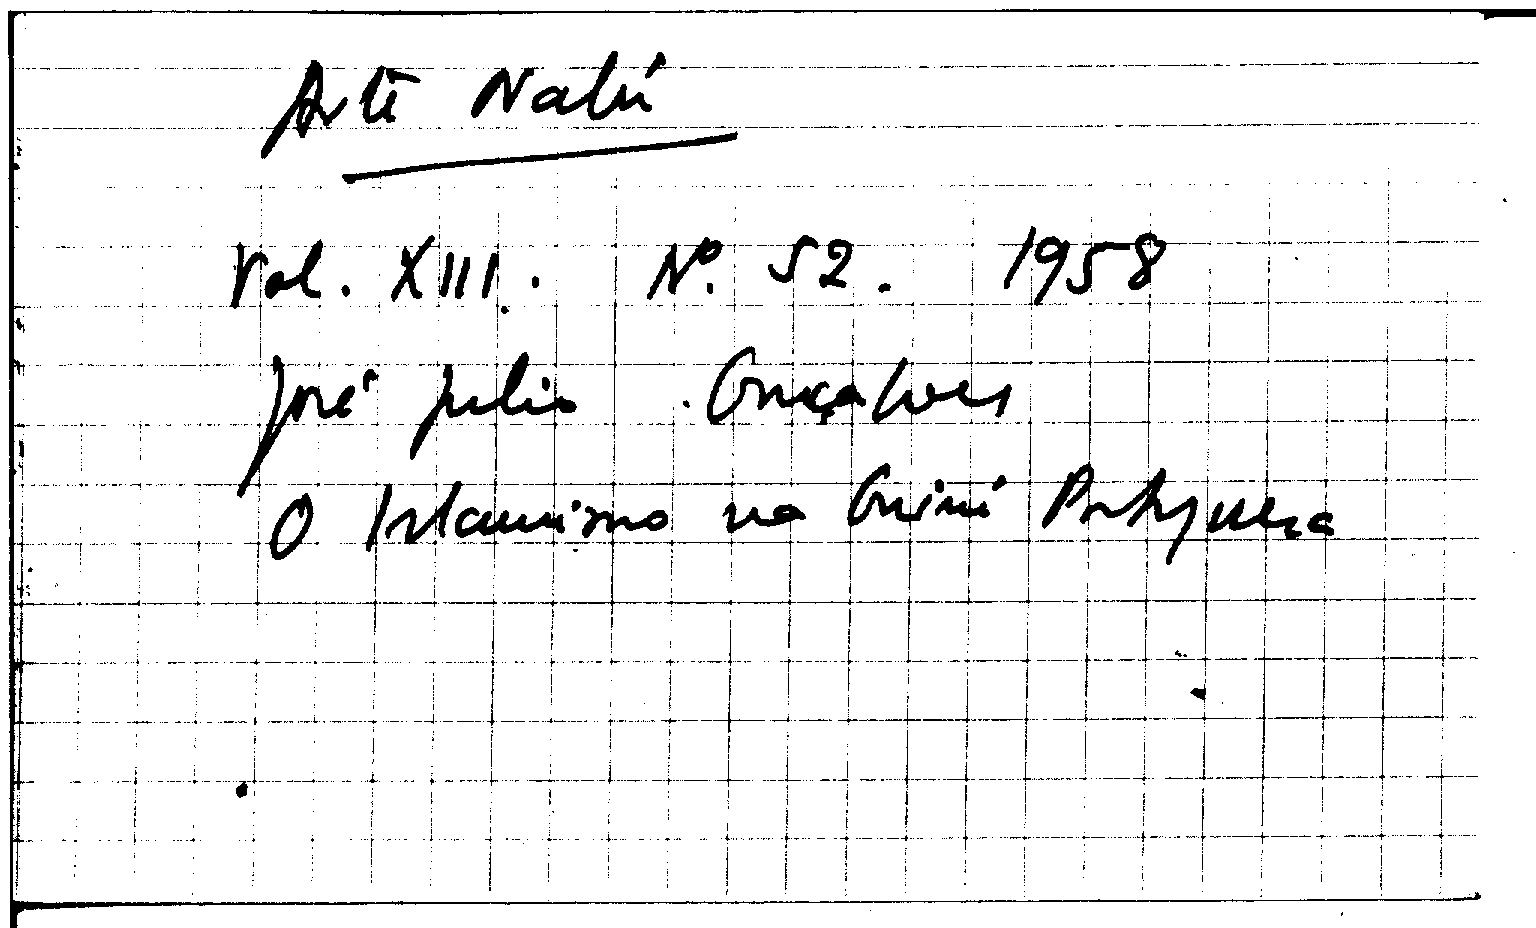 Arte Nalú
Vol. XIII. Nº. 52. 1958
José Julio Gonçalves
O Islamismo na Guiné Portuguesa